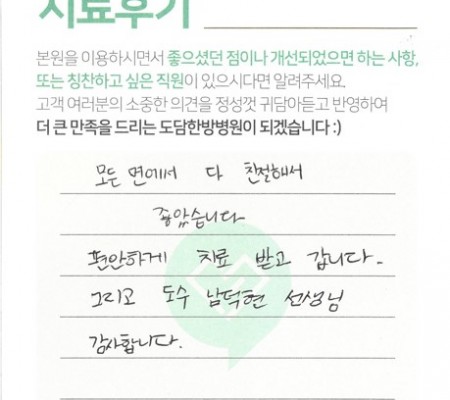 치료후기
본원을 이용하시면서 좋으셨던 점이나 개선되었으면 하는 사항,
또는 칭찬하고 싶은 직원이 있으시다면 알려주세요.
고객 여러분의 소중한 의견을 정성껏 귀담아듣고 반영하여
더 큰 만족을 드리는 도담한방병원이 되겠습니다 :)
모든 면에서 다 친절해서
좋았습니다
편안하게 치료 받고 갑니다.
그리고 도수 남덕현 선생님
감사합니다.